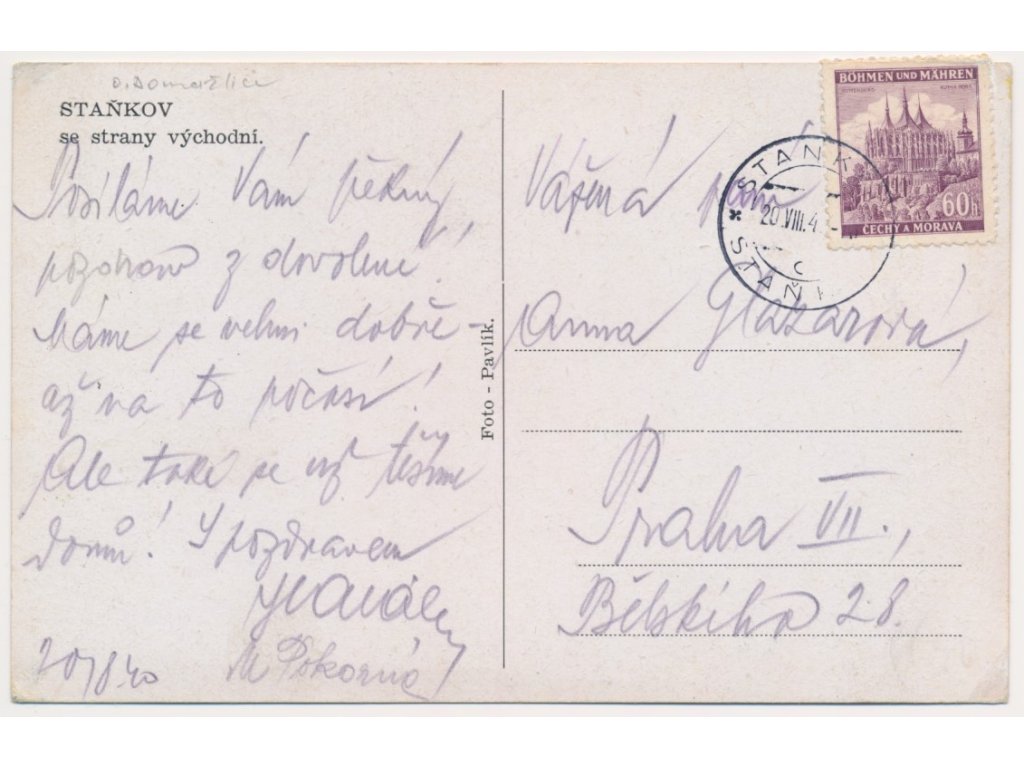 o. Domažlice
STAŇKOV
se strany východní.
Posíláme Vám pěkný
pozdrav z dovolené.
Máme se velmi dobře
až na to počasí!
Ale také se už těšíme
domů! S pozdravem
M Pokorná
20/8 40
Foto - Pavlík.
BÖHMEN UND MÄHREN
KUTTENBERG KUTNÁ HORA
60h
ČECHY A MORAVA
STANK
20.VIII.4
C
STAŇK
Vážená paní
Anna Glazarová,
Praha VII.,
Bělského 28.